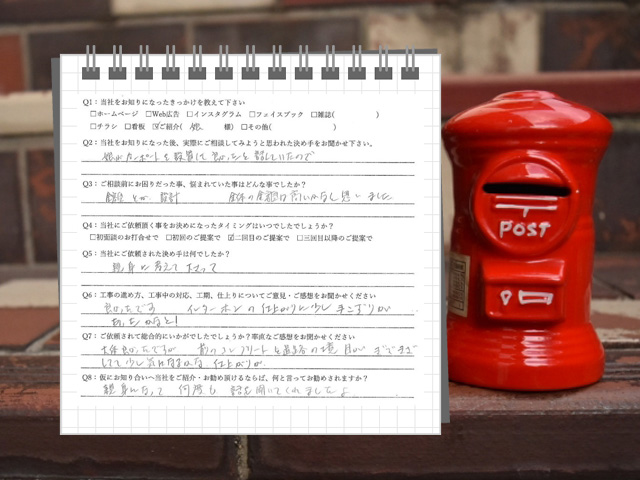 Q1：当社をお知りになったきっかけを教えて下さい
□ホームページ □Web広告 □インスタグラム □フェイスブック □雑誌( )
□チラシ □看板 ☑ご紹介( 娘 様) □その他( )
Q2：当社をお知りになった後、実際にご相談してみようと思われた決め手をお聞かせ下さい。
娘がカーポートを設置して良かったと話していたので
Q3：ご相談前にお困りだった事、悩まれていた事はどんな事でしたか？
金額とか 設計 全体の金額は高いかなし思いました
Q4：当社にご依頼頂く事をお決めになったタイミングはいつでしたでしょうか？
□初面談のお打合せで □初回のご提案で ☑二回目のご提案で □三回目以降のご提案で
Q5：当社にご依頼された決め手は何でしたか？
親身に考えて
Q6：工事の進め方、工事中の対応、工期、仕上りについてご意見・ご感想をお聞かせください
良かったです インターホンの仕上がりに少し手こずりが
あったかなと！
Q7：ご依頼されて総合的にいかがでしたでしょうか？率直なご感想をお聞かせください
大体良かったですが 前のコンクリートと の境目が
して少し気になるかな 仕上がりが
Q8：仮にお知り合いへ当社をご紹介・お勧め頂けるならば、何と言ってお勧めされますか？
親身になって 何度も 話を聞いてくれましたよ
POST